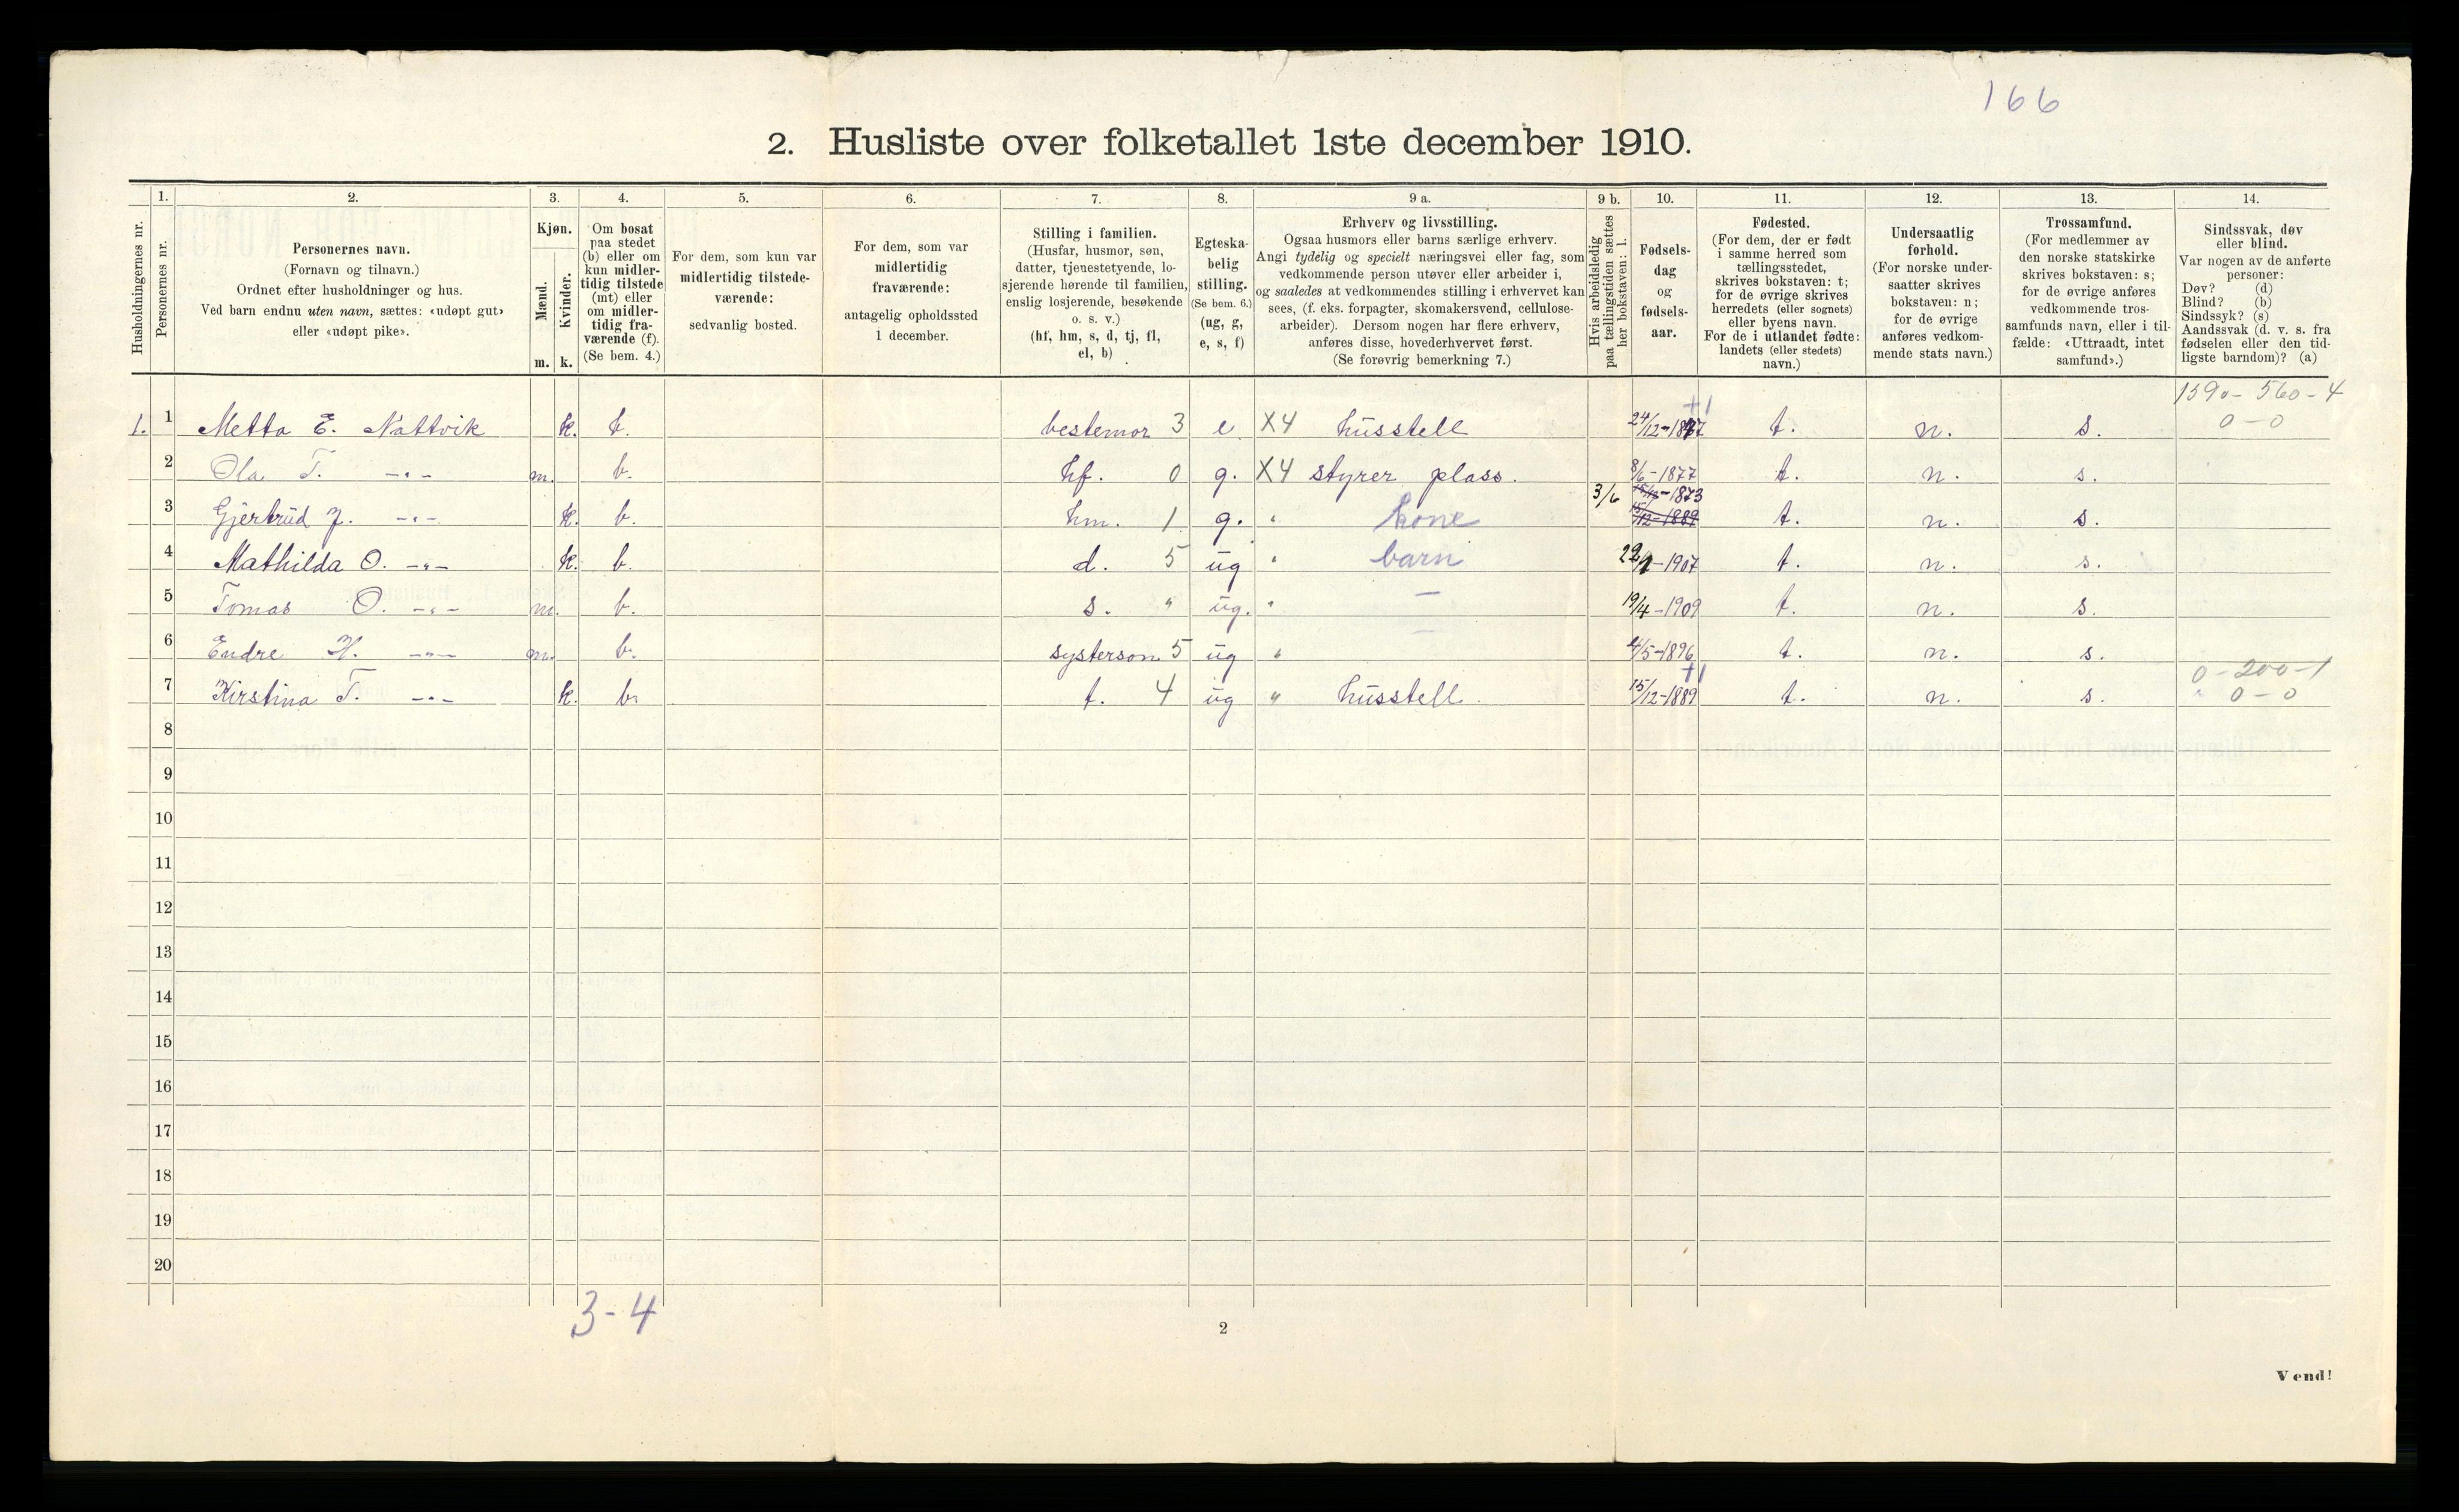 166
2. Husliste over folketallet 1ste december 1910.
1. 2. 3. 4. 5. 6. 7. 8. 9 a. 9 b. 10. 11. 12. 13. 14.
Husholdningernes nr.
Personernes nr.
Personernes navn.
(Fornavn og tilnavn.)
Ordnet efter husholdninger og hus.
Ved barn endnu uten navn, sættes: «udøpt gut»
eller «udøpt pike».
Kjøn.
Mænd.
m.
Kvinder.
k.
Om bosat
paa stedet
(b) eller om
kun midler-
tidig tilstede
(mt) eller
om midler-
tidig fra-
værende (f).
(Se bem. 4.)
For dem, som kun var
midlertidig tilstede-
værende:
sedvanlig bosted.
For dem, som var
midlertidig
fraværende:
antagelig opholdssted
1 december.
Stilling i familien.
(Husfar, husmor, søn,
datter, tjenestetyende, lo-
sjerende hørende til familien,
enslig losjerende, besøkende
o. s. v.)
(hf, hm, s, d, tj, fl,
el, b)
Egteska-
belig
stilling.
(Se bem. 6.)
(ug, g,
e, s, f)
Erhverv og livsstilling.
Ogsaa husmors eller barns særlige erhverv.
Angi tydelig og specielt næringsvei eller fag, som
vedkommende person utøver eller arbeider i,
og saaledes at vedkommendes stilling i erhvervet kan
sees, (f. eks. forpagter, skomakersvend, cellulose-
arbeider). Dersom nogen har flere erhverv,
anføres disse, hovederhvervet først.
(Se forøvrig bemerkning 7.)
Hvis arbeidsledig
paa tællingstiden sættes
her bokstaven: l.
Fødsels-
dag
og
fødsels-
aar.
Fødested.
(For dem, der er født
i samme herred som
tællingsstedet,
skrives bokstaven: t;
for de øvrige skrives
herredets (eller sognets)
eller byens navn.
For de i utlandet fødte:
landets (eller stedets)
navn.)
Undersaatlig
forhold.
(For norske under-
saatter skrives
bokstaven: n;
for de øvrige
anføres vedkom-
mende stats navn.)
Trossamfund.
(For medlemmer av
den norske statskirke
skrives bokstaven: s;
for de øvrige anføres
vedkommende tros-
samfunds navn, eller i til-
fælde: «Uttraadt, intet
samfund».)
Sindssvak, døv
eller blind.
Var nogen av de anførte
personer:
Døv? (d)
Blind? (b)
Sindssyk? (s)
Aandssvak (d. v. s. fra
fødselen eller den tid-
ligste barndom)? (a)
1590-560-4
1. 1 Metta E. Nattvik k. b. bestemor 3 e X4 husstell t. n. s. 0-0
2 Ola T. -"- m. b. hf. 0 g. X4 styrer plass. 8/6-1877 t. n. s.
3/6 -1873
3 Gjertrud J. -"- k. b. hm. 1 g. " kone 15/12-1889 t. n. s.
4 Mathilda O. -"- k. b. d. 5 ug " barn -1907 t. n. s.
5 Tomas O. -"- m. b. s. " ug. " — 19/4-1909 t. n. s.
6 Endre H. -"- m. b. systerson 5 ug " — /5-1896 t. n. s.
+1 0-200-1
7 Kirstina T. -"- k. b. t. 4 ug " husstell. 15/12-1889 t. n. s. " 0-0
8
9
10
11
12
13
14
15
16
17
18
19
20
3-4
2
Vend!